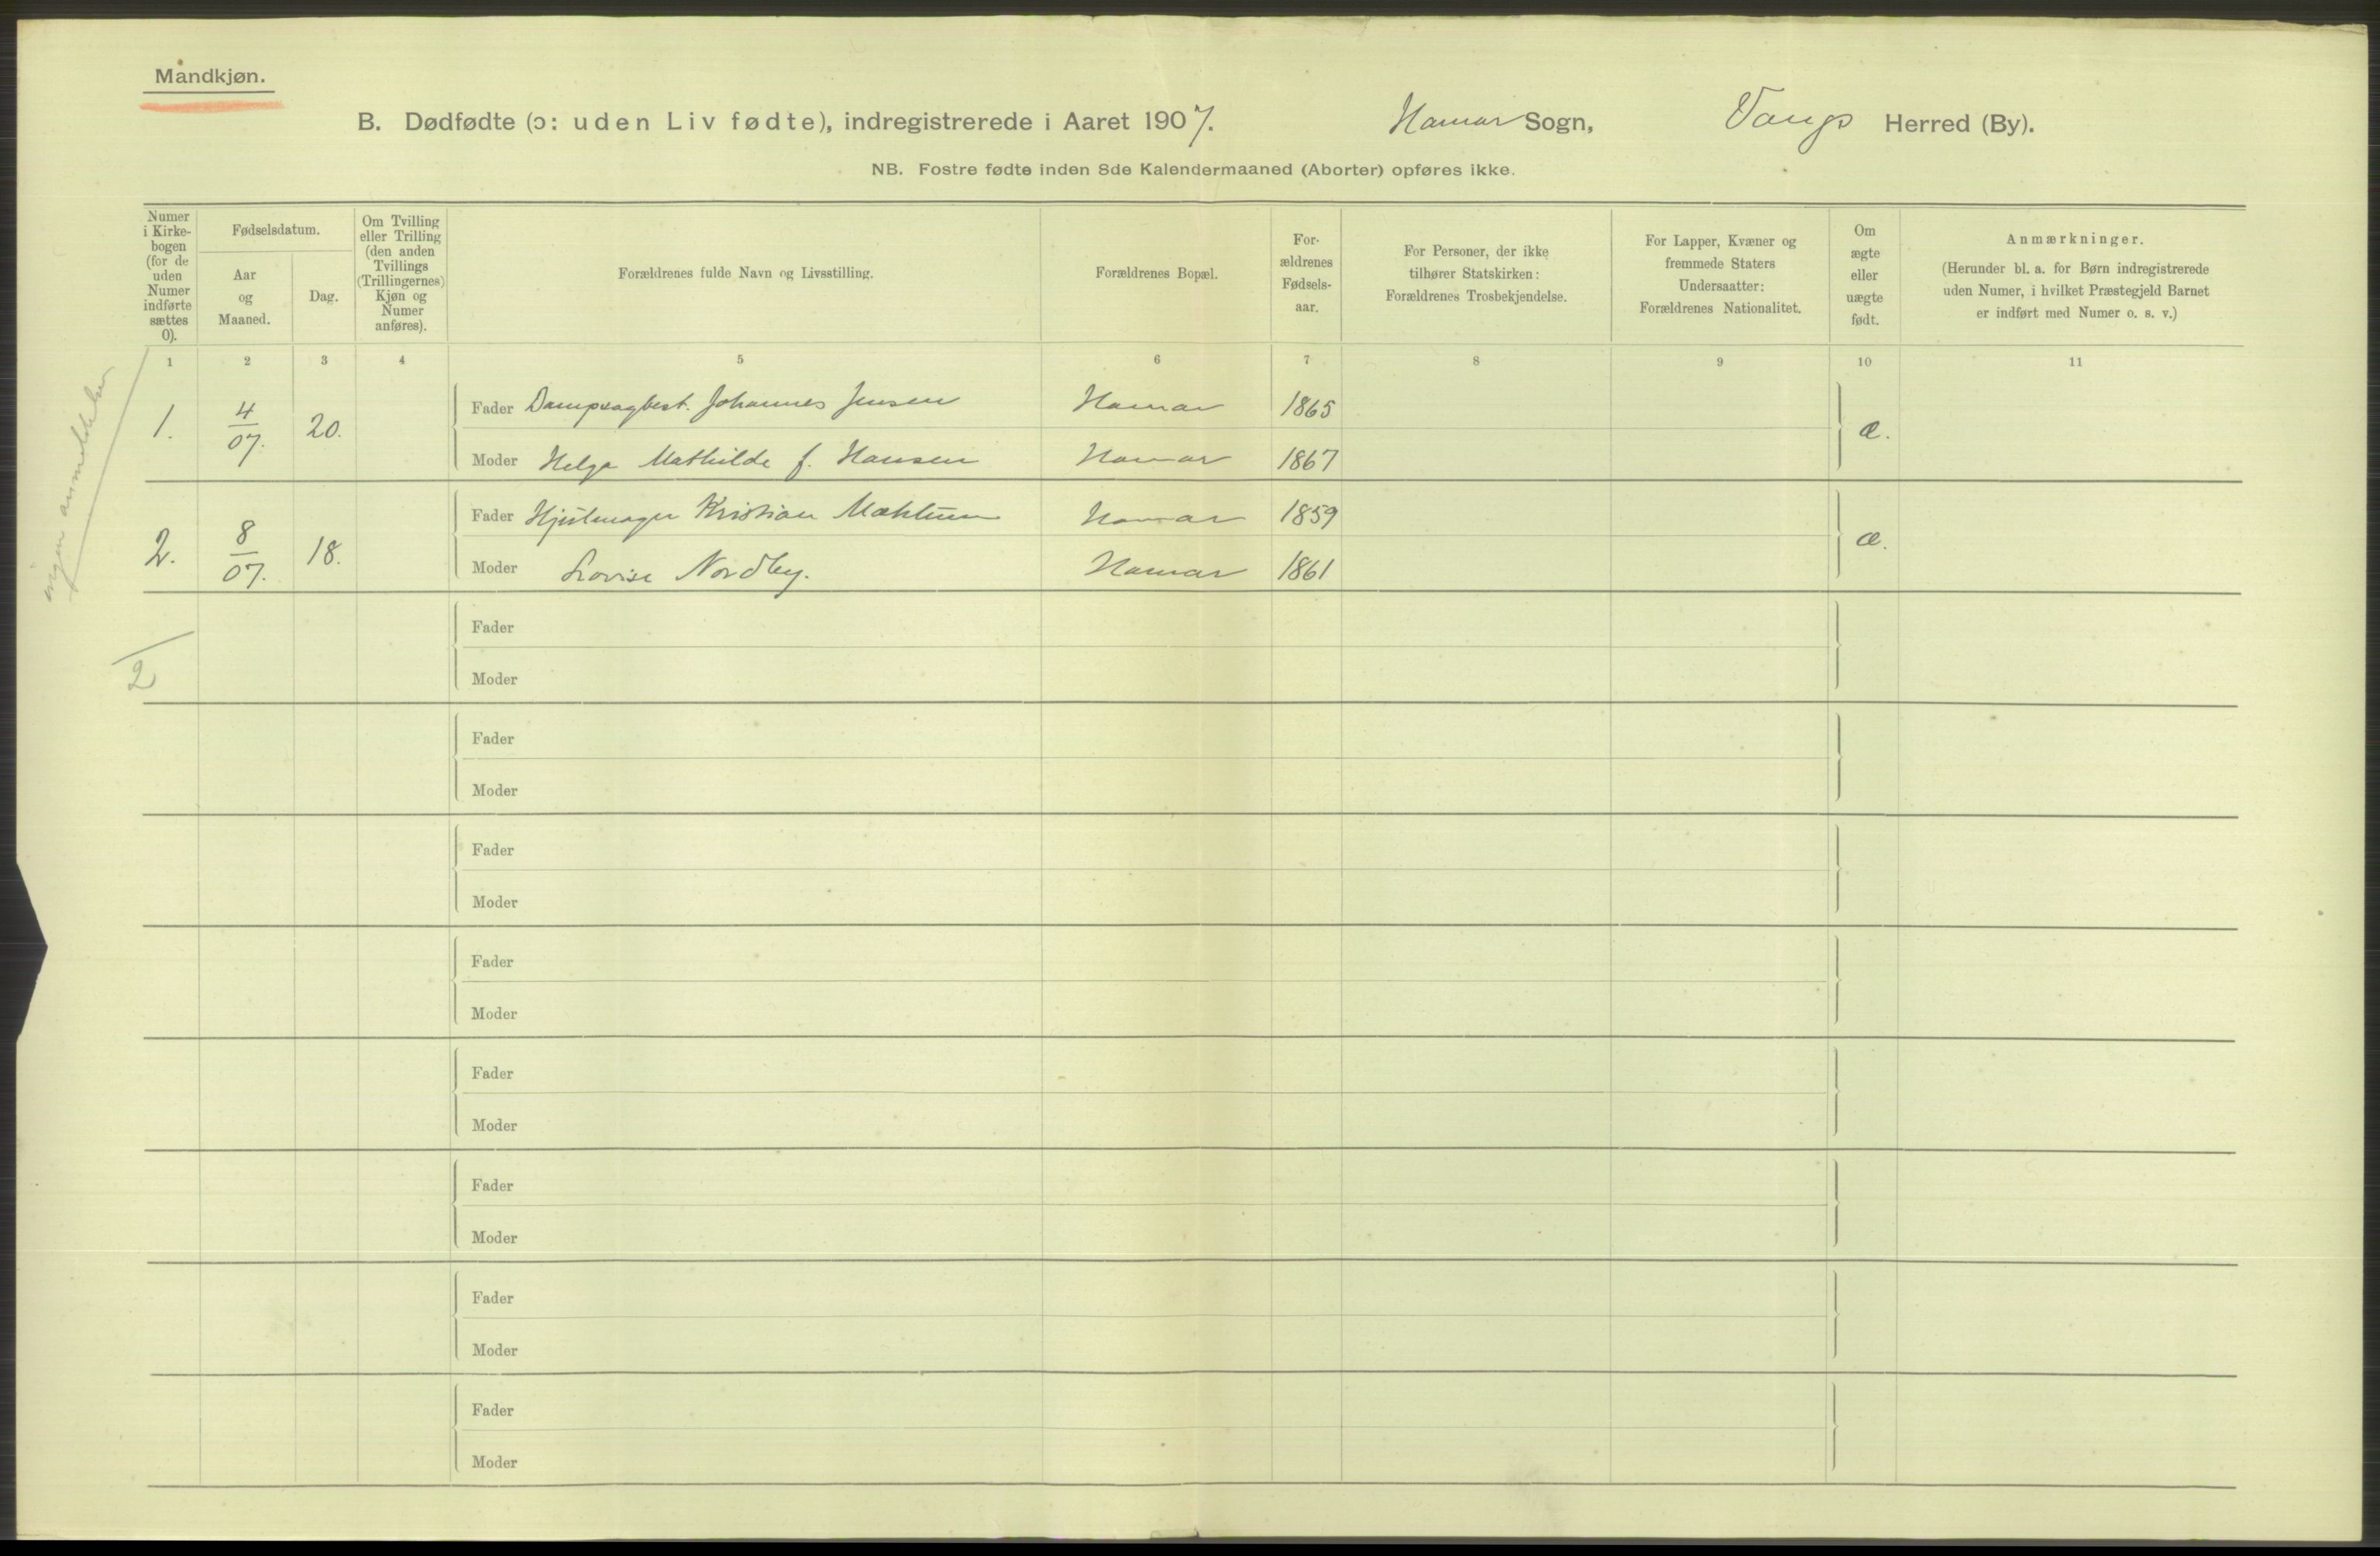 Mandkjøn.
B. Dødfødte (ɔ: uden Liv fødte), indregistrerede i Aaret 1907. Hamar Sogn, Vangs Herred (By).
NB. Fostre fødte inden 8de Kalendermaaned (Aborter) opføres ikke.
Numer
i Kirke-
bogen
(for de
uden
Numer
indførte
sættes
0).
Fødselsdatum.
Aar
og
Maaned.
Dag.
Om Tvilling
eller Trilling
(den anden
Tvillings
(Trillingernes)
Kjøn og
Numer
anføres).
Forældrenes fulde Navn og Livsstilling.
Forældrenes Bopæl.
For-
ældrenes
Fødsels-
aar.
For Personer, der ikke
tilhører Statskirken:
Forældrenes Trosbekjendelse.
For Lapper, Kvæner og
fremmede Staters
Undersaatter:
Forældrenes Nationalitet.
Om
ægte
eller
uægte
født.
Anmærkninger.
(Herunder bl. a. for Børn indregistrerede
uden Numer, i hvilket Præstegjeld Barnet
er indført med Numer o. s. v.)
1 2 3 4 5 6 7 8 9 10 11
1. 4/07. 20. Fader Dampsagbest. Johannes Jensen Hamar 1865 æ.
Moder Helga Mathilde f. Hansen Hamar 1867
2. 8/07. 18. Fader Hjulmager Kristian Hamar 1859 æ.
Moder Lovise Nordby. Hamar 1861
ingen anmeldelser
2
Fader
Moder
Fader
Moder
Fader
Moder
Fader
Moder
Fader
Moder
Fader
Moder
Fader
Moder
Fader
Moder